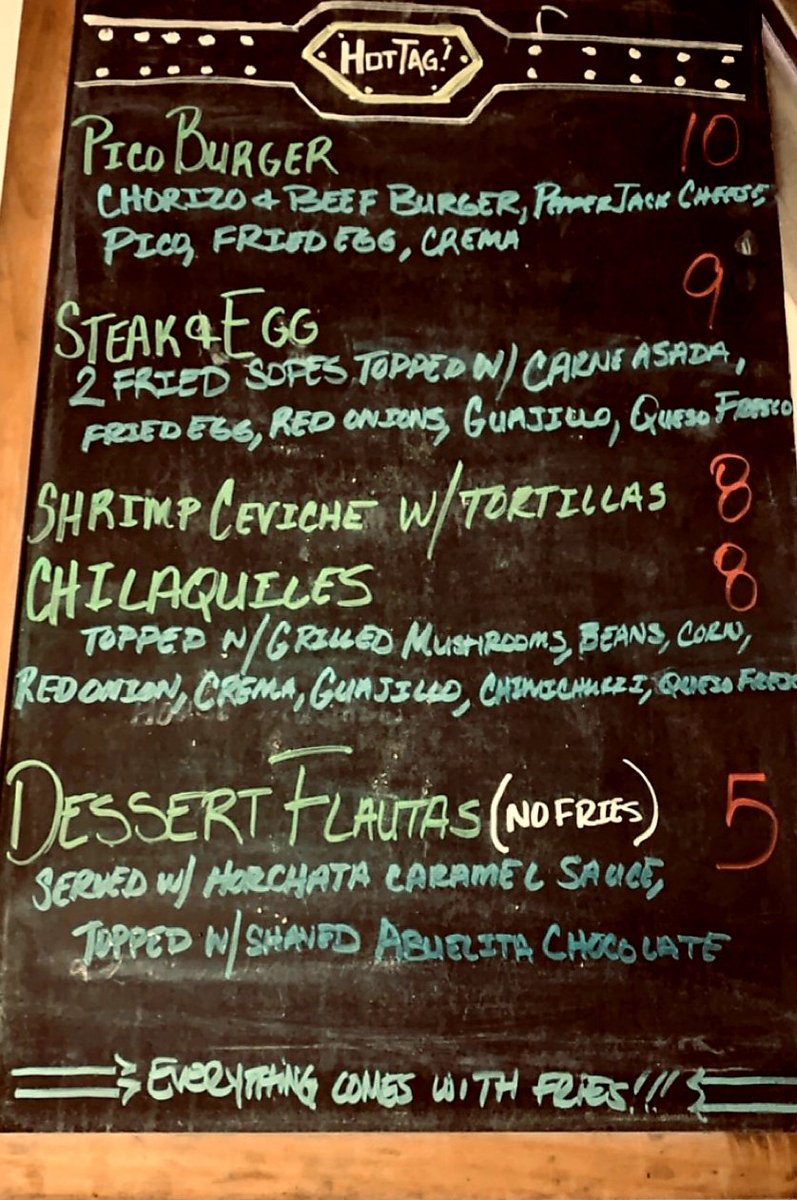 HOT TAG!
PICO BURGER 10
CHORIZO & BEEF BURGER, PEPPER JACK CHEESE,
PICO, FRIED EGG, CREMA
STEAK & EGG 9
2 FRIED SOPES TOPPED W/ CARNE ASADA,
FRIED EGG, RED ONIONS, GUAJILLO, QUESO FRESCO
SHRIMP CEVICHE W/ TORTILLAS 8
CHILAQUILES 8
TOPPED W/ GRILLED MUSHROOMS, BEANS, CORN,
RED ONION, CREMA, GUAJILLO, CHIMICHURRI, QUESO FRESCO
DESSERT FLAUTAS (NO FRIES) 5
SERVED W/ HORCHATA CARAMEL SAUCE,
TOPPED W/ SHAVED ABUELITA CHOCOLATE
EVERYTHING COMES WITH FRIES!!!